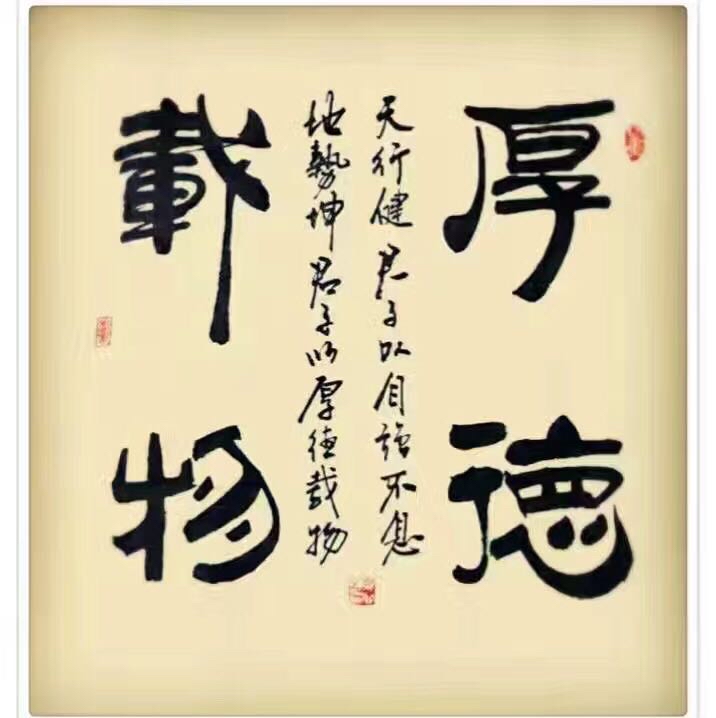 厚德
天行健君子以自强不息
地勢坤君子以厚德载物
載物